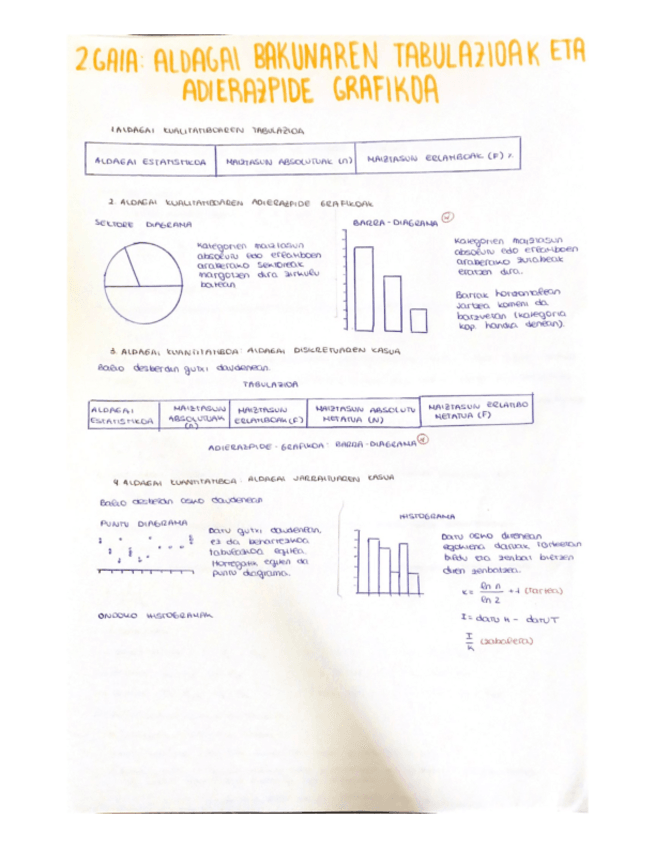 2 GAIA: ALDAGAI BAKUNAREN TABULAZIOAK ETA
ADIERAZPIDE GRAFIKOA
1 ALDAGAI KUALITATIBOAREN TABULAZIOA
ALDAGAI ESTATISTIKOA
MAIZTASUN ABSOLUTUAK (n)
MAIZTASUN ERLATIBOAK (F) %
2. ALDAGAI KUALITATIBOAREN ADIERAZPIDE GRAFIKOAK
SEKTORE DIAGRAMA
Kategorien maiztasun
absolutu edo erlatiboen
araberako sektoreak
margotzen dira zirkulu
batean
BARRA-DIAGRAMA
Kategorien maiztasun
absolutu edo erlatiboen
araberako zutabeak
eratzen dira.
Barrak horizontalean
jartzea komeni da
batzuetan (kategoria
kop. handia denean).
3 ALDAGAI KUANTITATIBOA: ALDAGAI DISKRETUAREN KASUA
Balio desberdin gutxi daudenean.
TABULAZIOA
ALDAGAI
ESTATISTIKOA
MAIZTASUN
ABSOLUTUAK
(n)
MAIZTASUN
ERLATIBOAK (F)
MAIZTASUN ABSOLUTU
METATUA (N)
MAIZTASUN ERLATIBO
METATUA (F)
ADIERAZPIDE-GRAFIKOA: BARRA-DIAGRAMA
4 ALDAGAI KUANTITATIBOA: ALDAGAI JARRAITUAREN KASUA
Balio desberdin asko daudenean
PUNTU DIAGRAMA
Datu gutxi daudenean,
ez da beharrezkoa
tabulazioa egitea.
Horregatik egiten da
puntu diagrama.
HISTOGRAMA
Datu asko direnean
egokiena datuak tarteetan
bildu eta zenbat biltzen
diren zenbatzea.
K = ln n / ln 2 + 1 (tartea)
I = datu H - datu T
I / K (zabalera)
ONDOKO HISTOGRAMAK